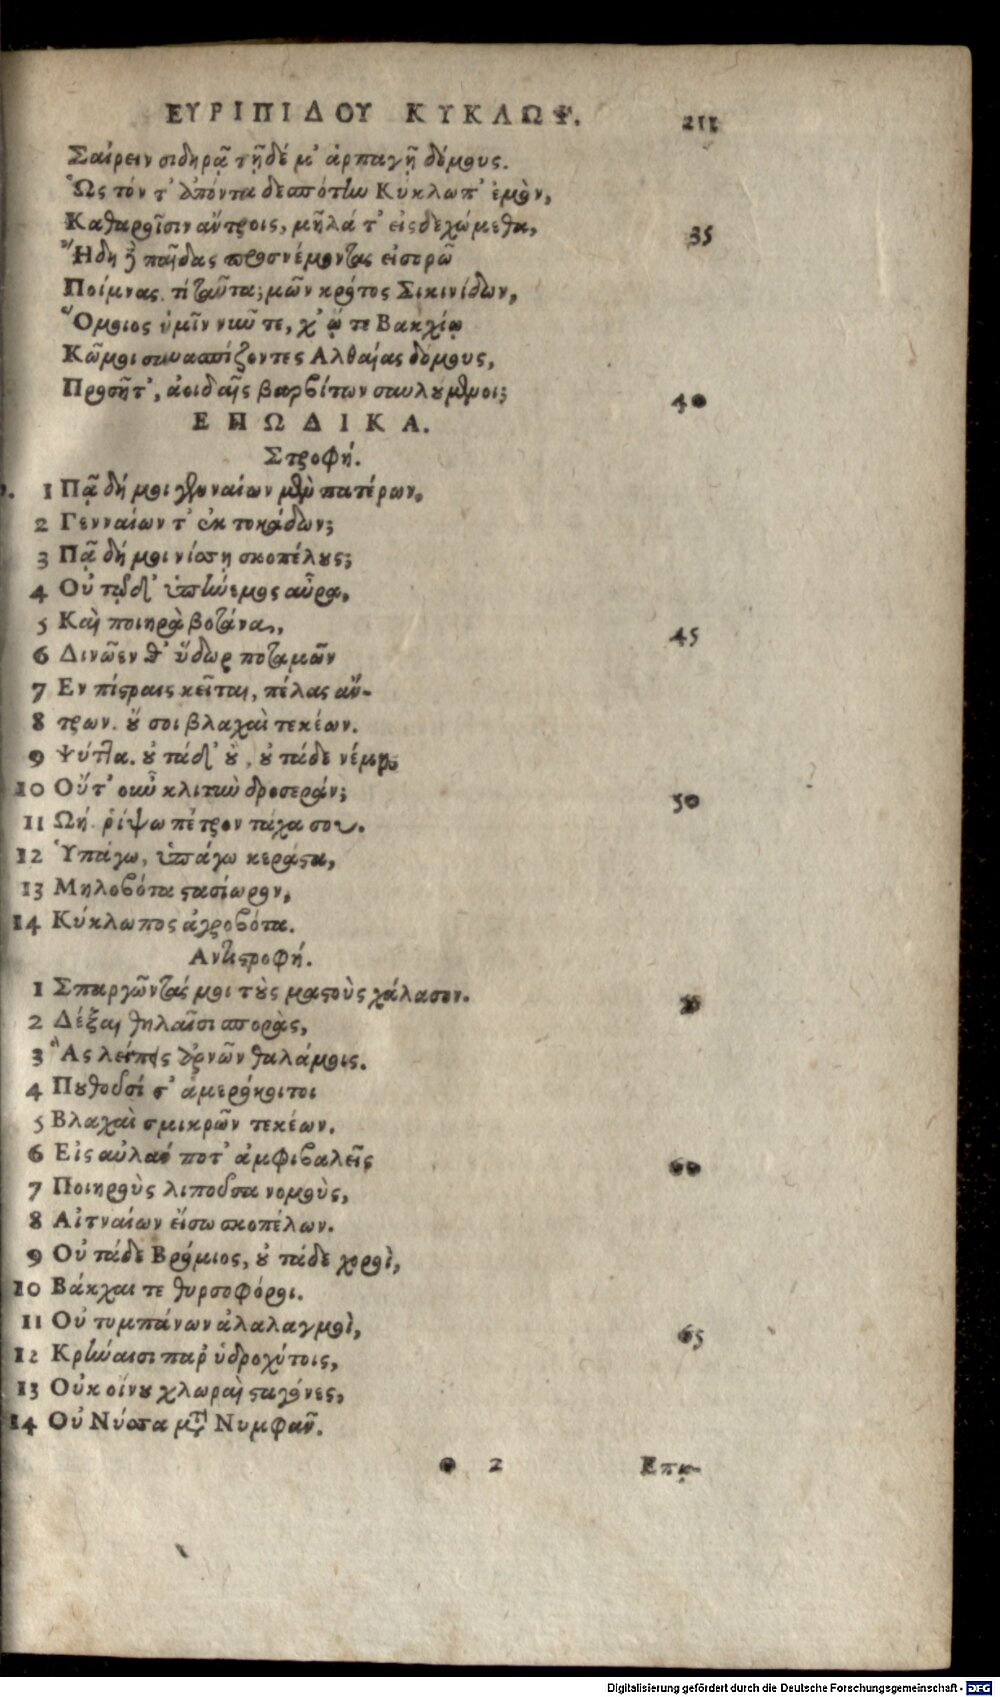 ΕΥΡΙΠΙΔΟΥ ΚΥΚΛΩΨ. 211
Σαίρειν σιδηρᾷ τῇδέ μ' ἁρπαγῇ δόμους.
Ὡς τόν τ' ἀπόντα δεσπότην Κύκλωπ' ἐμὸν,
Καθαροῖσιν ἄντροις, μῆλά τ' εἰσδεχώμεθα, 35
Ἤδη δὲ παῖδας προσνέμοντας εἰσορῶ
Ποίμνας. τί ταῦτα; μῶν κρότος Σικινίδων,
Ὅμοιος ὑμῖν νῦν τε, χ' ᾧ τε Βακχίῳ
Κῶμοι συνασπίζοντες Αλθαίας δόμους,
Προσῆτ', ἀοιδαῖς βαρβίτων σαυλούμενοι; 40
ΕΠΩΔΙΚΑ.
Στροφή.
1 Πᾷ δή μοι γενναίων μὲν πατέρων,
2 Γενναίων τ' ἐκ τοκάδων;
3 Πᾷ δή μοι νίσῃ σκοπέλους;
4 Οὐ τᾷδ' ὑπήνεμος αὖρα,
5 Καὶ ποιηρὰ βοτάνα, 45
6 Δινᾶεν θ' ὕδωρ ποταμῶν
7 Εν πίστραις κεῖται, πέλας ἄν-
8 τρων. οὔ σοι βλαχαὶ τεκέων.
9 Ψύττα. οὐ τάδ' οὔ, οὐ τάδε νέμῃ;
10 Οὔτ' οὖν κλιτὺν δροσεράν; 50
11 Ωή. ῥίψω πέτρον τάχα σου.
12 Ὑπάγω, ὑπάγω κεράστα,
13 Μηλοβότα στασίωρον,
14 Κύκλωπος ἀγροβότα.
Αντιστροφή.
1 Σπαργῶντάς μοι τοὺς μαστοὺς χάλασον. 55
2 Δέξαι θηλαῖσι σπορὰς,
3 Ἃς λείπεις ἀρνῶν θαλάμοις.
4 Ποθοῦσί σ' ἁμερόκοιτοι
5 Βλαχαὶ σμικρῶν τεκέων.
6 Εἰς αὐλάν ποτ' ἀμφιβαλεῖς 60
7 Ποιηροὺς λιποῦσα νομοὺς,
8 Αἰτναίων εἴσω σκοπέλων.
9 Οὐ τάδε Βρόμιος, οὐ τάδε χοροὶ,
10 Βάκχαι τε θυρσοφόροι.
11 Οὐ τυμπάνων ἀλαλαγμοὶ, 65
12 Κρήναισι παρ' ὑδροχύτοις,
13 Οὐκ οἴνου χλωραὶ σταγόνες,
14 Οὐ Νύσσα μετὰ Νυμφᾶν.
2 Επα-
Digitalisierung gefördert durch die Deutsche Forschungsgemeinschaft - DFG